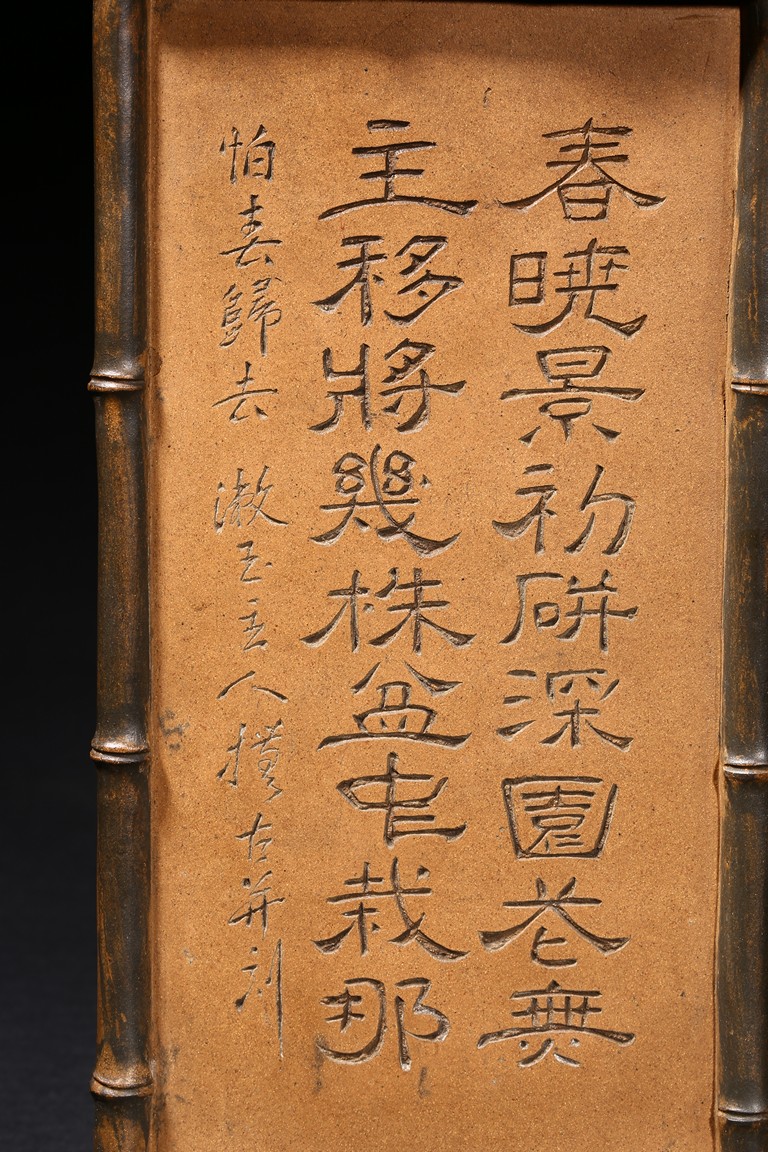 春曉景初研深園花無
主移將幾株盆中栽那
怕春歸去 漱玉主人古并刻